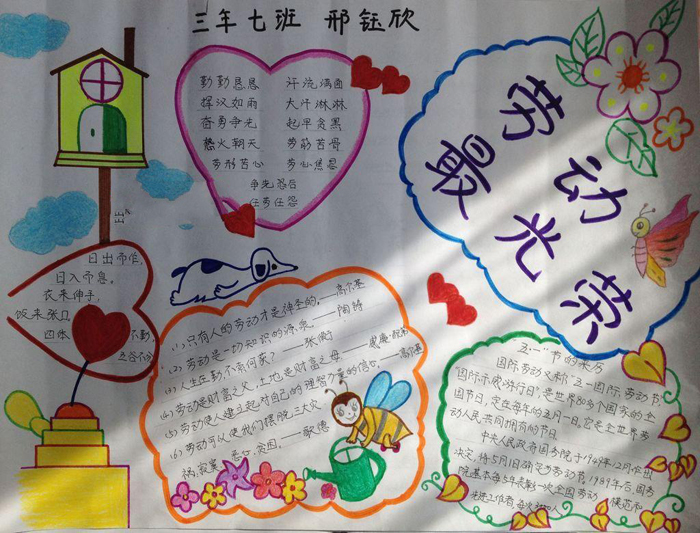 三年七班 邢钰欣
勤勤恳恳 汗流满面
挥汉如雨 大汗淋淋
奋勇争光 起早贪黑
热火朝天 劳筋苦骨
劳形苦心 劳心焦思
争先恐后
任劳任怨
劳动
最光荣
日出而作,
日入而息。
衣来伸手,
饭来张口
四体 不勤,
五谷不分
(1)只有人的劳动才是神圣的。——高尔基
(2)劳动是一切知识的源泉。——陶铸
(3)人生在勤不索何获?——张衡
(4)劳动是财富之父,土地是财富之母——威廉·配第
(5)劳动使人建立起对自己的理智力量的信心。——高尔基
(6)劳动可以使我们摆脱三大灾
祸,寂寞、恶心、贫困。——歌德
五·一"节的来历
国际劳动又称"五一国际劳动节"
"国际示威游行日"是世界80多个国家的全
国节日,定在每年的五月一日。它是全世界劳
动人民共同拥有的节日
中央人民政府国务院于1949年12月作出
决定,将5月1日确定为劳动节。1989年后,国务
院基本每5年表彰一次全国劳动 模范和
先进工作者,每次